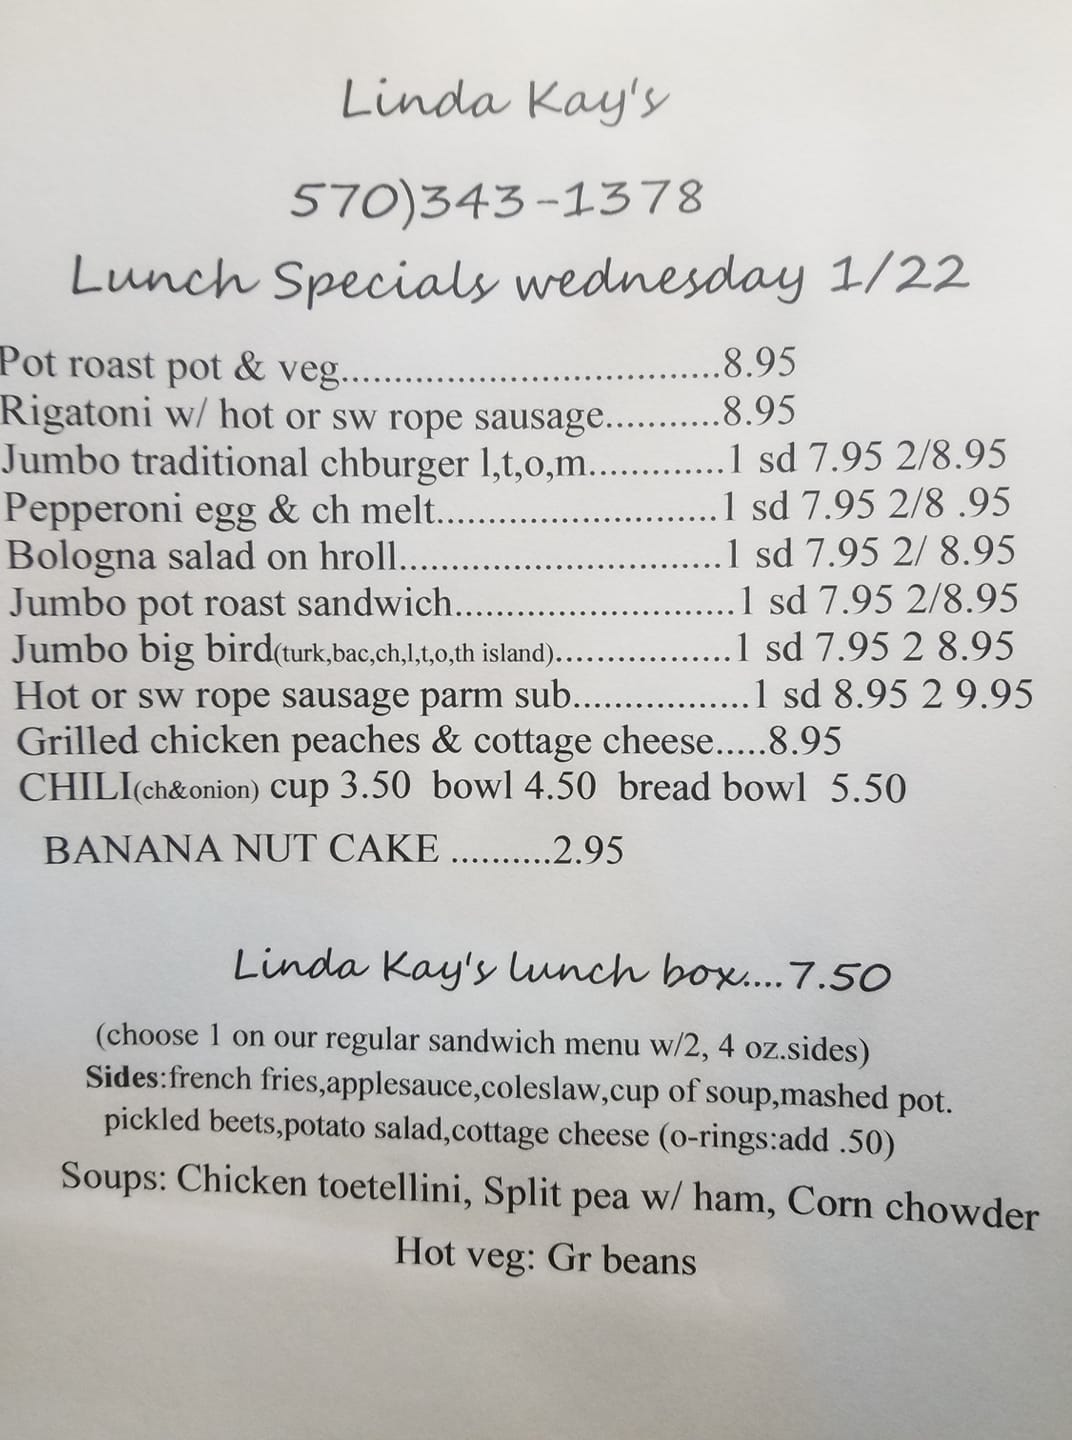 Linda Kay's
570)343-1378
Lunch Specials wednesday 1/22
Pot roast pot & veg.....................................8.95
Rigatoni w/ hot or sw rope sausage...........8.95
Jumbo traditional chburger l,t,o,m.............1 sd 7.95 2/8.95
Pepperoni egg & ch melt...........................1 sd 7.95 2/8 .95
Bologna salad on hroll...............................1 sd 7.95 2/ 8.95
Jumbo pot roast sandwich...........................1 sd 7.95 2/8.95
Jumbo big bird(turk,bac,ch,l,t,o,th island).................1 sd 7.95 2 8.95
Hot or sw rope sausage parm sub.................1 sd 8.95 2 9.95
Grilled chicken peaches & cottage cheese.....8.95
CHILI(ch&onion) cup 3.50 bowl 4.50 bread bowl 5.50
BANANA NUT CAKE ..........2.95
Linda Kay's lunch box....7.50
(choose 1 on our regular sandwich menu w/2, 4 oz.sides)
Sides:french fries,applesauce,coleslaw,cup of soup,mashed pot.
pickled beets,potato salad,cottage cheese (o-rings:add .50)
Soups: Chicken toetellini, Split pea w/ ham, Corn chowder
Hot veg: Gr beans